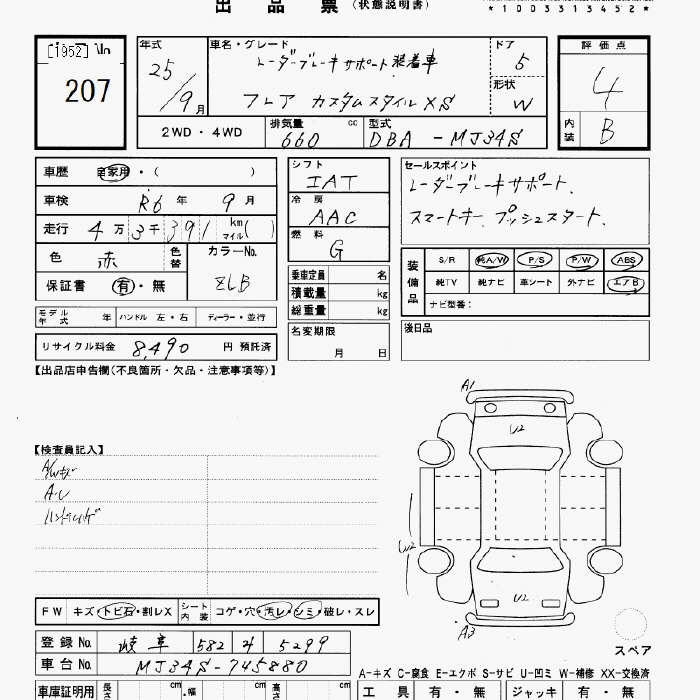 出品票(状態説明書)
*1003313452*
[1952]
207
年式 25/9月
車名・グレード レーダーブレーキサポート装着車
フレア カスタムスタイルXS
ドア 5
形状 W
評価点 4
内装 B
2WD・4WD
排気量 660 cc
型式 DBA - MJ34S
車歴 自家用・( )
車検 R6年 9月
走行 4万3千391 km マイル( )
色 赤 色替
カラーNo. ZLB
保証書 有・無
モデル年式 年 ハンドル 左・右 ディーラー・並行
リサイクル料金 8,490 円 預託済
シフト IAT
冷房 AAC
燃料 G
乗車定員 名
積載量 kg
総重量 kg
名変期限
月 日
セールスポイント
レーダーブレーキサポート.
スマートキー. プッシュスタート.
装備品
S/R 純A/W P/S P/W ABS
純TV 純ナビ 革シート 外ナビ エアB
ナビ型番:
後日品
【出品店申告欄(不良箇所・欠品・注意事項等)】
【検査員記入】
A/Wキズ
A・U
A1
U2
W2
U2
A3
スペア
FW キズ・トビ石・割レX
シート内装 コゲ・穴・汚レ・シミ・破レ・スレ
登録No. 岐阜 582 5299
車台No. MJ34S-745880
A-キズ C-腐食 E-エクボ S-サビ U-凹ミ W-補修 XX-交換済
車庫証明用 長さ cm・幅 cm 高さ cm
工具 有・無 ジャッキ 有・無